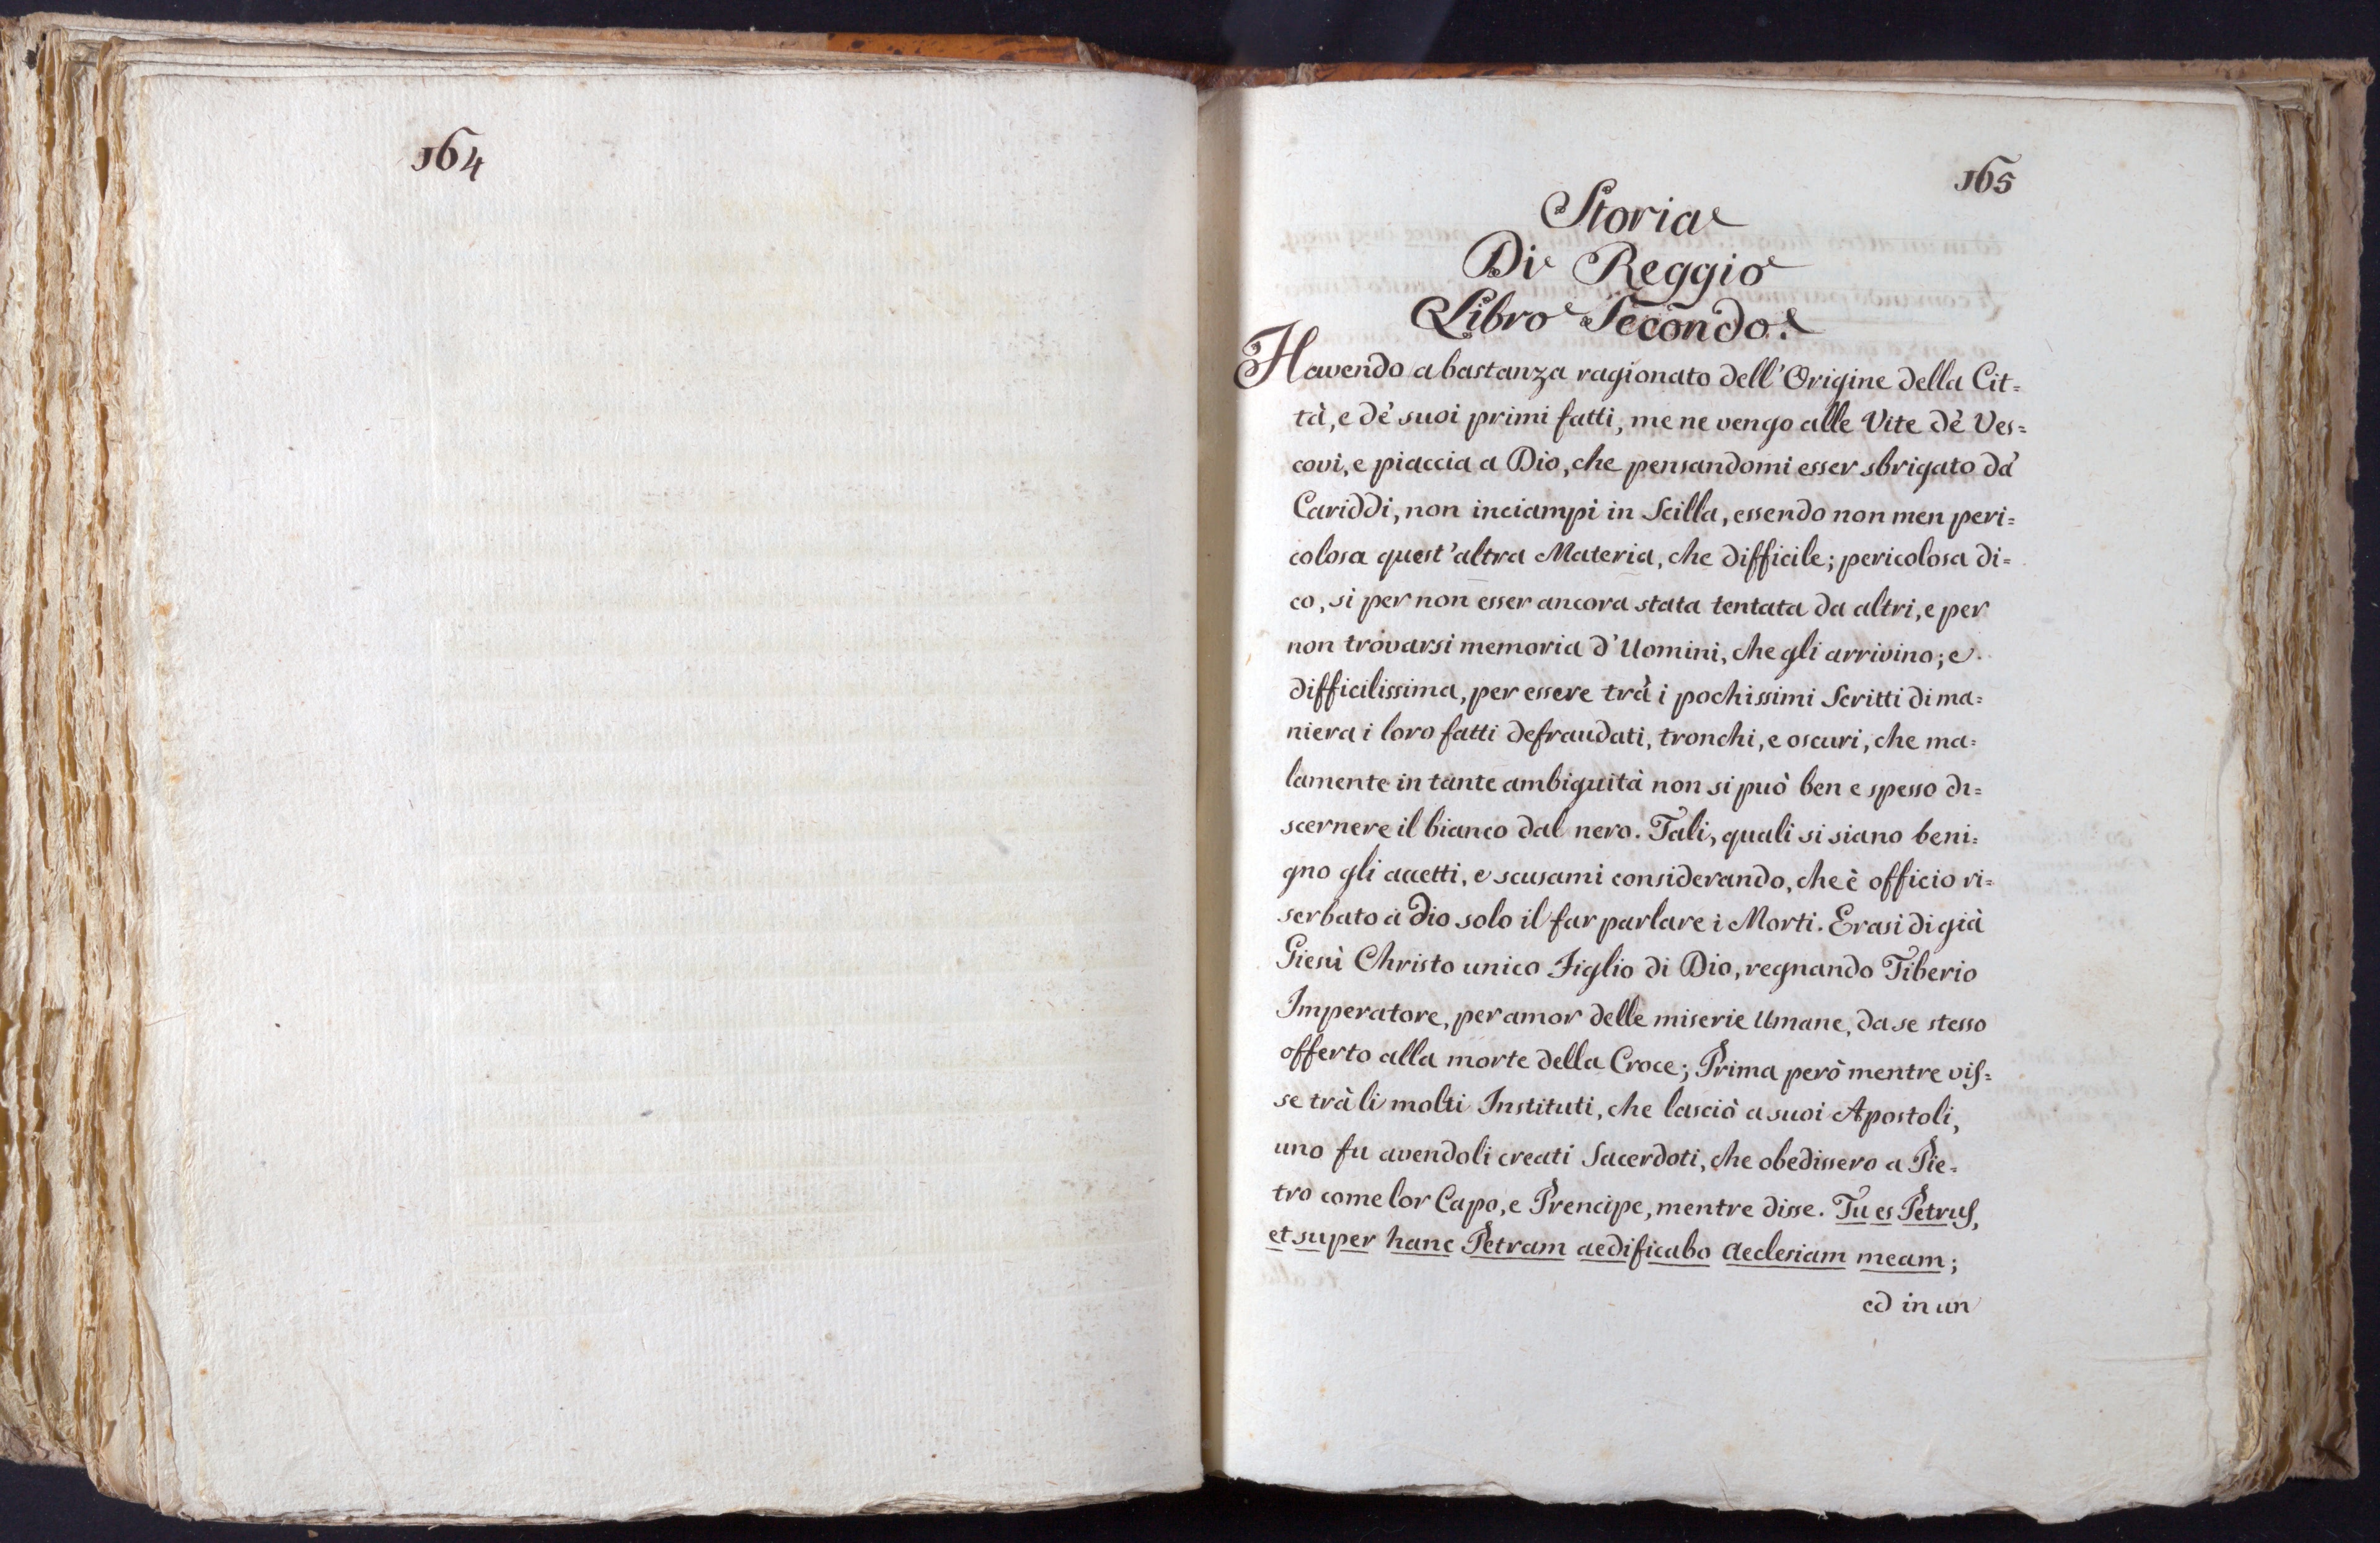 164
165
Storia
Di Reggio
Libro Secondo.
Havendo a bastanza ragionato dell'Origine della Cit=
tà, e dè suoi primi fatti, me ne vengo alle Vite dè Ves=
covi, e piaccia a Dio, che pensandomi esser sbrigato dà
Cariddi, non inciampi in Scilla, essendo non men peri=
colosa quest'altra Materia, che difficile; pericolosa di=
co, si per non esser ancora stata tentata da altri, e per
non trovarsi memoria d'Uomini, che gli arrivino; e
difficilissima, per essere trà i pochissimi Scritti di ma=
niera i loro fatti defraudati, tronchi, e oscuri, che ma=
lamente in tante ambiguità non si può ben e spesso di=
scernere il bianco dal nero. Tali, quali si siano beni=
gno gli accetti, e scusami considerando, che è officio ri=
serbato a Dio solo il far parlare i Morti. Erasi di già
Giesù Christo unico Figlio di Dio, regnando Tiberio
Imperatore, per amor delle miserie Umane, da se stesso
offerto alla morte della Croce; Prima però mentre vis=
se trà li molti Instituti, che lasciò a suoi Apostoli,
uno fu avendoli creati Sacerdoti, che obedissero a Pie=
tro come lor Capo, e Prencipe, mentre disse. Tu es Petrus,
et super hanc Petram aedificabo aeclesiam meam;
ed in un